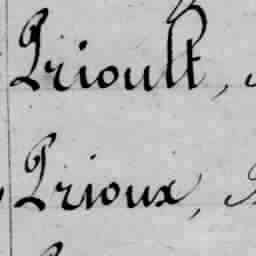 Prioult,
Prioux,